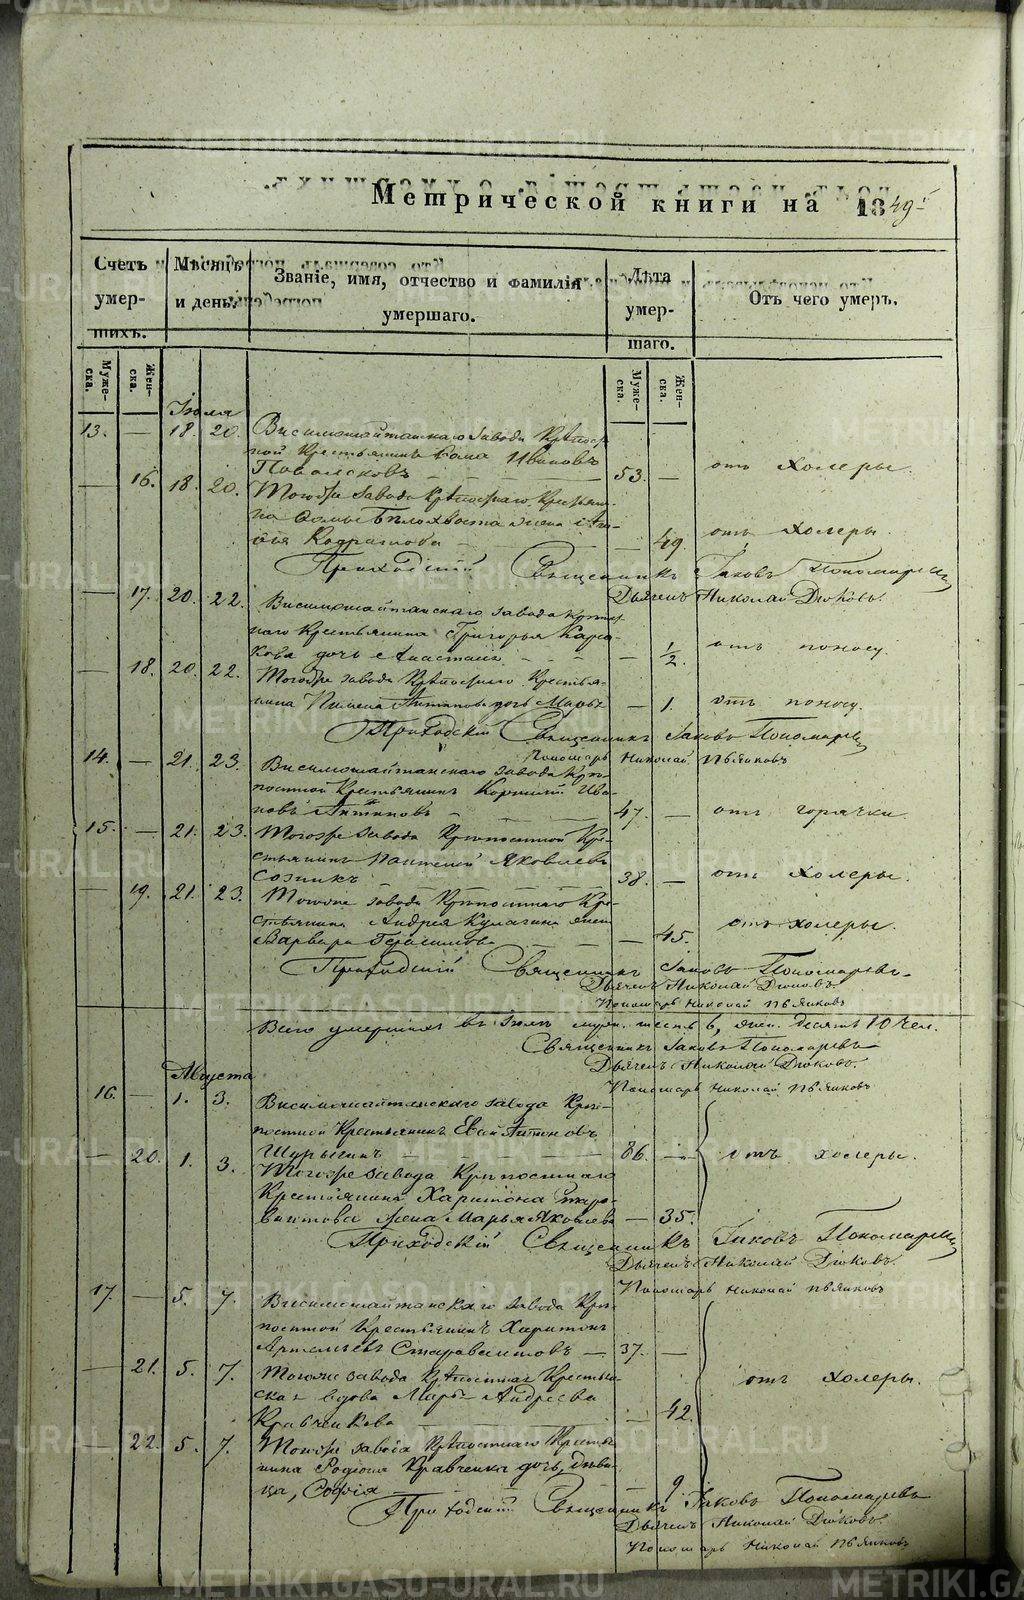 Метрической книги на 1849 г
Счетъ умер-шихъ.
Мѣсяцъ и день.
Званіе, имя, отчество и фамилія умершаго.
Лѣта умер-шаго.
Отъ чего умеръ.
Муже-ска.
Жен-ска.
Муже-ска.
Жен-ска.
Іюля
13. — 18. 20. Висимошайтанскаго завода Крѣпост-
ной Крестьянинъ Ѳома Ивановъ
53. — отъ холеры.
— 16. 18. 20. Тогоже завода Крѣпостнаго Крестьяни-
на Ѳомы Бѣлохвоста жена
— 49 отъ холеры
Приходскій Священникъ Іаковъ Пономаревъ
Дьячекъ Николай Дюковъ.
— 17. 20. 22. Висимошайтанскаго завода крѣпост-
наго Крестьянина Григорья
дочь Анастасія — 1/2. отъ поносу.
— 18. 20. 22. Тогоже завода Крѣпостнаго Крестья-
нина Пимена дочь Марья — 1. отъ поносу.
Приходскій Священникъ Іаковъ Пономаревъ
Пономарь Николай Пѣянковъ
14. — 21. 23. Висимошайтанскаго завода Крѣ-
постной Крестьянинъ Корнилій Ива-
новъ 47. — отъ горячки.
15. — 21. 23. Тогоже завода Крѣпостной Кре-
стьянинъ Пантелей Яковлевъ
Созникъ 38. — отъ холеры.
— 19. 21. 23. Тогоже завода Крѣпостнаго Кре-
стьянина Андрея Кулагина жена
Варвара Герасимова — 45. отъ холеры.
Приходскій Священникъ Іаковъ Пономаревъ
Дьячекъ Николай Дюковъ.
Пономарь Николай Пѣянковъ
Всего умершихъ въ Іюлѣ муж. шесть 6, жен. десять 10 чел.
Священникъ Іаковъ Пономаревъ
Дьячекъ Николай Дюковъ.
Пономарь Николай Пѣянковъ
Августа
16. — 1. 3. Висимошайтанскаго завода Крѣ-
постной Крестьянинъ Антоновъ
Шурыгинъ 36. — отъ холеры.
— 20. 1. 3. Тогоже завода Крѣпостнаго
Крестьянина Харитона Старо-
винтова жена Марья Яковлева — 35.
Приходскій Священникъ Іаковъ Пономаревъ
Дьячекъ Николай Дюковъ.
Пономарь Николай Пѣянковъ
17. — 5. 7. Висимошайтанскаго завода Крѣ-
постной Крестьянинъ Харитонъ
Артемьевъ 37. —
— 21. 5. 7. Тогоже завода Крѣпостная Крестьян-
ская вдова Марья Андреева
Кравченкова — 42. отъ холеры.
— 22. 5. 7. Тогоже завода Крѣпостнаго Кресть-
нина Родіона Кравченка дочь, дѣви-
ца, Софія — 9.
Приходскій Священникъ Іаковъ Пономаревъ
Дьячекъ Николай Дюковъ.
Пономарь Николай Пѣянковъ
METRIKI.GASO-URAL.RU